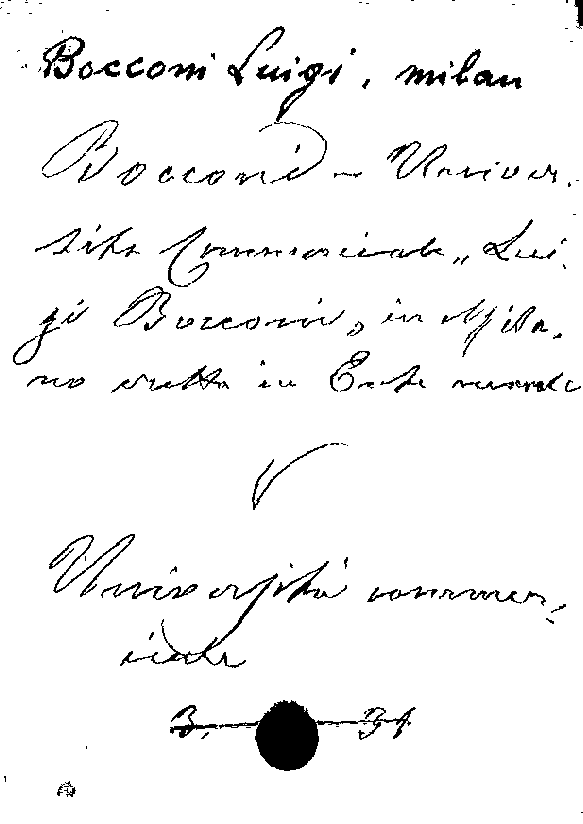 Bocconi Luigi, milan
Bocconi - Univer-
sità Commerciale „Lui-
gi Bocconi„ in Mila-
no eretta in Ente morale
V
Università commer-
ciale
B. 31